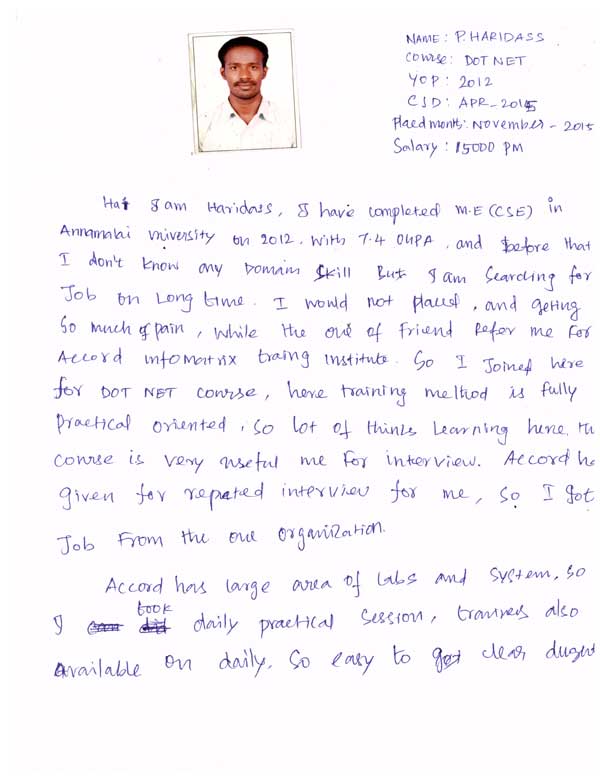 NAME: P. HARIDASS
Course: DOT NET
YOP: 2012
CJD: APR-2015
Placed month: November - 2015
Salary: 15000 PM
Hai I am Haridass, I have completed M.E (CSE) in
Annamalai university on 2012. with 7.4 OGPA, and before that
I don't know any Domain skill But I am Searching for
Job on Long time. I would not placed, and geting
So much of pain, while the one of Friend Refer me For
Accord infomatrix traing institute. So I Joined here
for DOT NET course, here training method is fully
practical oriented, so lot of things learning here. th
course is very useful me For interview. Accord h
given for repated interview for me, so I got
Job From the one organization.
Accord has large area of labs and system, so
I took daily practical session, trainers also
Available on daily. So easy to clear